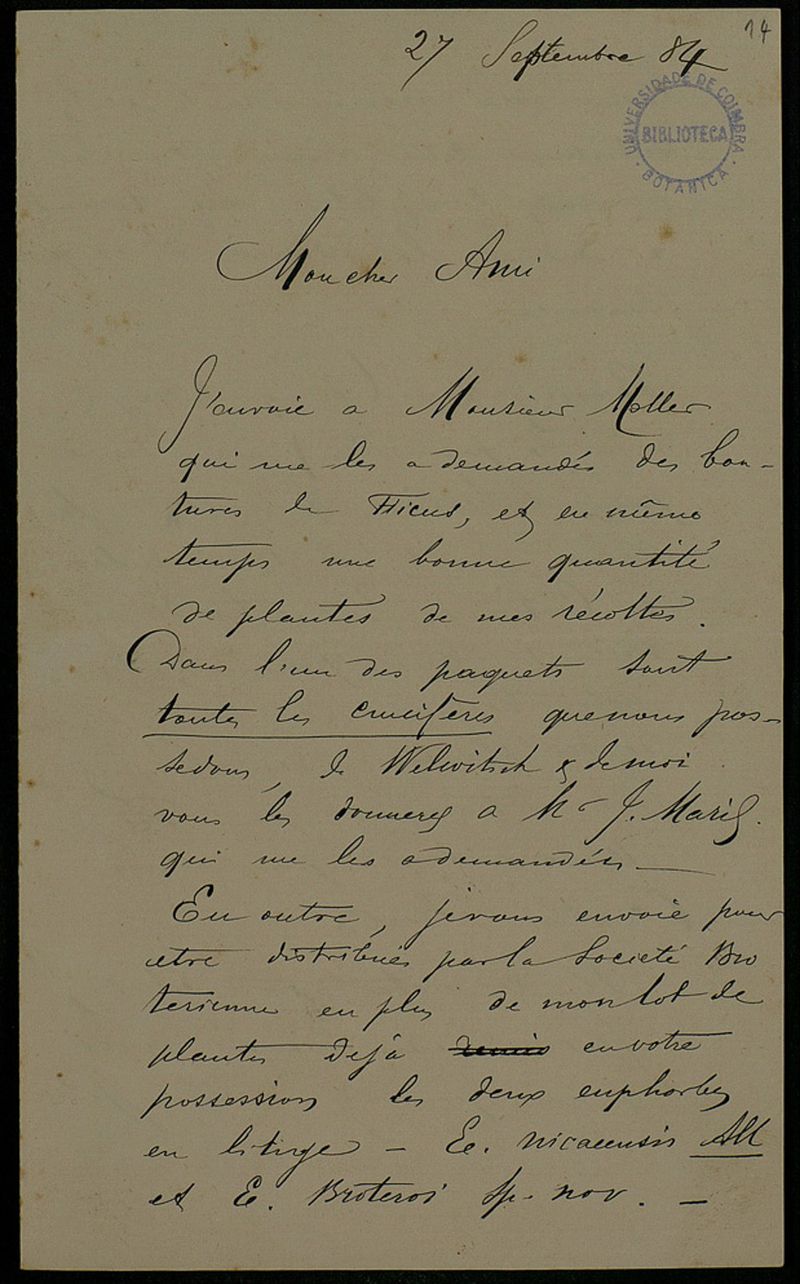 14
27 Septembre 84
UNIVERSIDADE DE COIMBRA
BIBLIOTECA
BOTANICA
Mon cher Ami
J'envoie a Monsieur Moller
qui me les a demandés des bou-
tures de Ficus, et en même
temps une bonne quantité
de plantes de mes récoltes.
Dans l'un des paquets sont
toutes les crucifères que nous pos-
sedons, de Welwitsch & de moi
vous les donnerez a Mr J. Mariz.
qui me les a demandées —
En outre, je vous envoie pour
etre distribués par la Societé Bro
terienne en plus de mon lot de
plantes dejà remis en votre
possession les deux euphorbes
en litige — E. nicaeensis All
et E. Broteroi Sp. nov. —